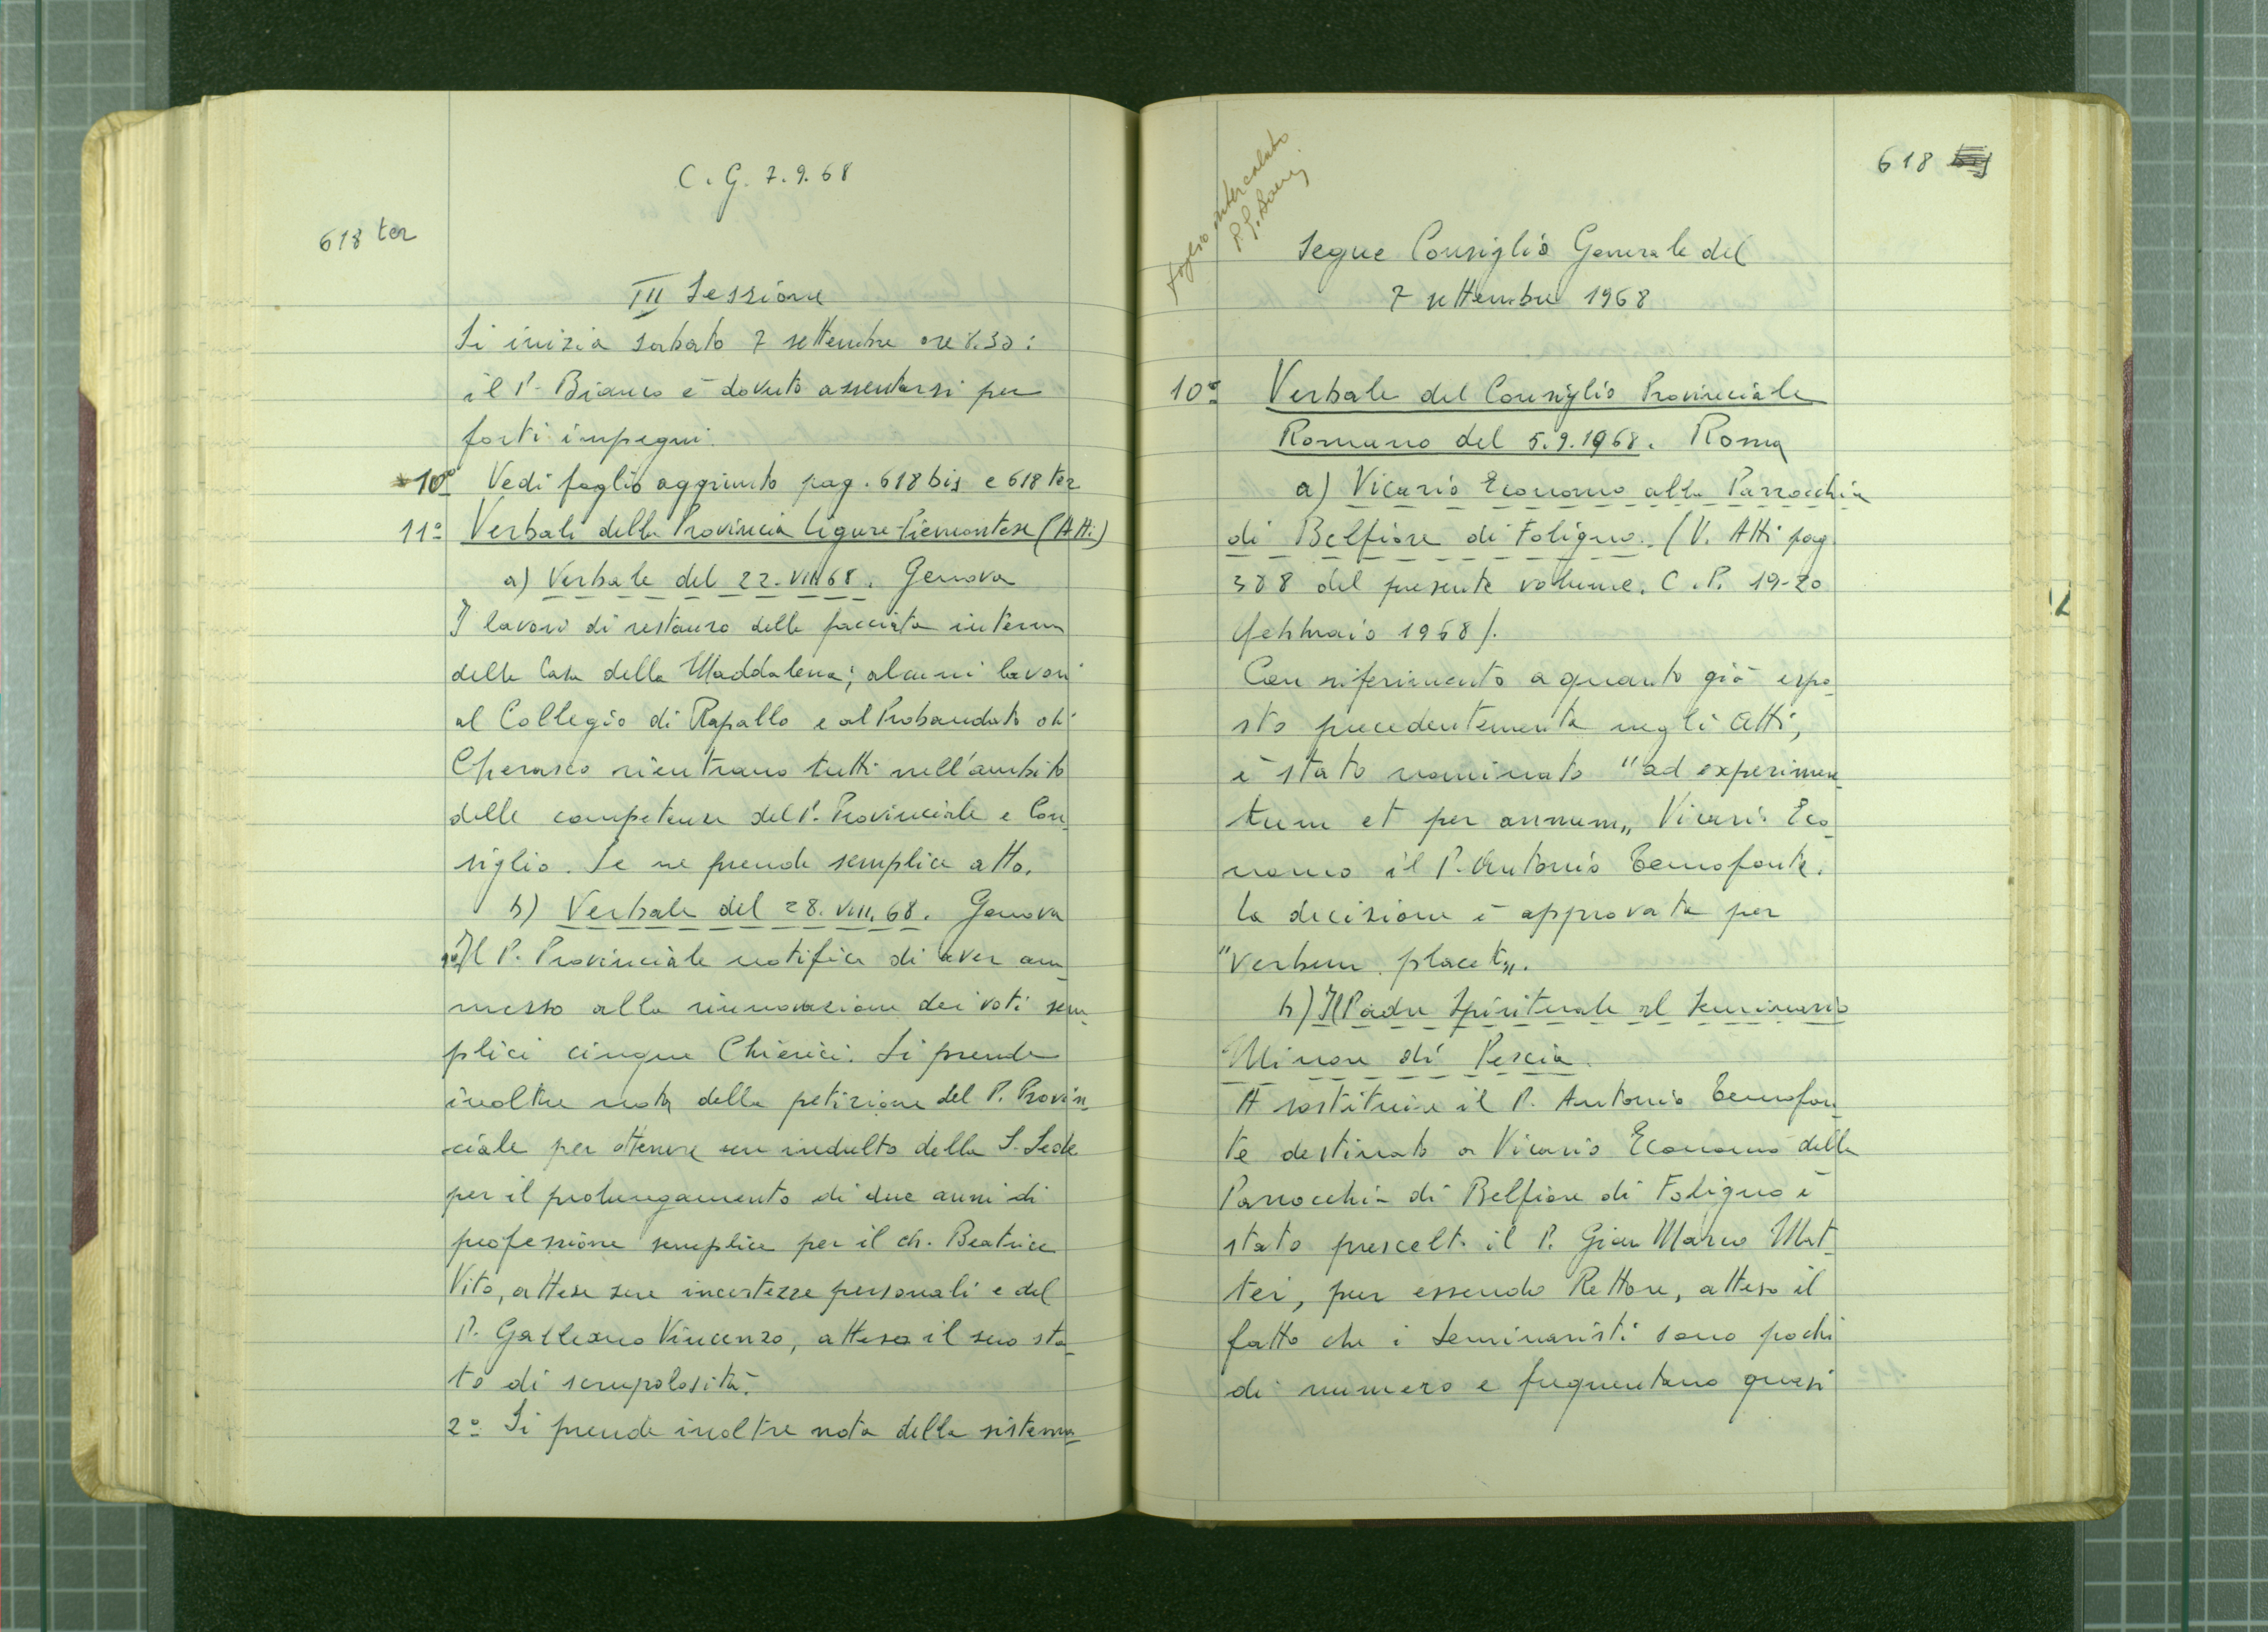 C. G. 7.9.68
618 ter
III Sessione
Si inizia sabato 7 settembre ore 8.30:
il P. Bianco è dovuto assentarsi per
forti impegni.
10º Vedi foglio aggiunto pag. 618 bis e 618 ter
11º Verbali della Provincia Ligure-Piemontese (Atti)
a) Verbale del 22.VIII.68. Genova
I lavori di restauro della facciata interna
della Casa della Maddalena; alcuni lavori
al Collegio di Rapallo e al Probandato di
Cherasco rientrano tutti nell'ambito
delle competenze del P. Provinciale e Con-
siglio. Se ne prende semplice atto.
b) Verbale del 28.VIII.68. Genova
1º Il P. Provinciale notifica di aver am-
messo alla rinnovazione dei voti sem-
plici cinque Chierici. Si prende
inoltre nota della petizione del P. Provin-
ciale per ottenere un indulto della S. Sede
per il prolungamento di due anni di
professione semplice per il ch. Beatrice
Vito, attese sue incertezze personali e del
P. Galleano Vincenzo, atteso il suo sta-
to di scrupolosità.
2º Si prende inoltre nota della sistema-
foglio intercalato
618
Segue Consiglio Generale del
7 settembre 1968
10º Verbale del Consiglio Provinciale
Romano del 5.9.1968. Roma
a) Vicario Economo alla Parrocchia
di Belfiore di Foligno. (V. Atti pag.
388 del presente volume. C.P. 19-20
febbraio 1968).
Con riferimento a quanto già espo-
sto precedentemente negli Atti,
è stato nominato "ad experimen-
tum et per annum„ Vicario Eco-
nomo il P. Antonio Temofonte.
La decisione è approvata per
"verbum placet„.
b) Il Padre Spirituale al Seminario
Minore di Pescia.
A sostituire il P. Antonio Temofon-
te destinato a Vicario Economo della
Parrocchia di Belfiore di Foligno è
stato prescelto il P. Gian Marco Mat-
tei, pur essendo Rettore, atteso il
fatto che i seminaristi sono pochi
di numero e frequentano quasi